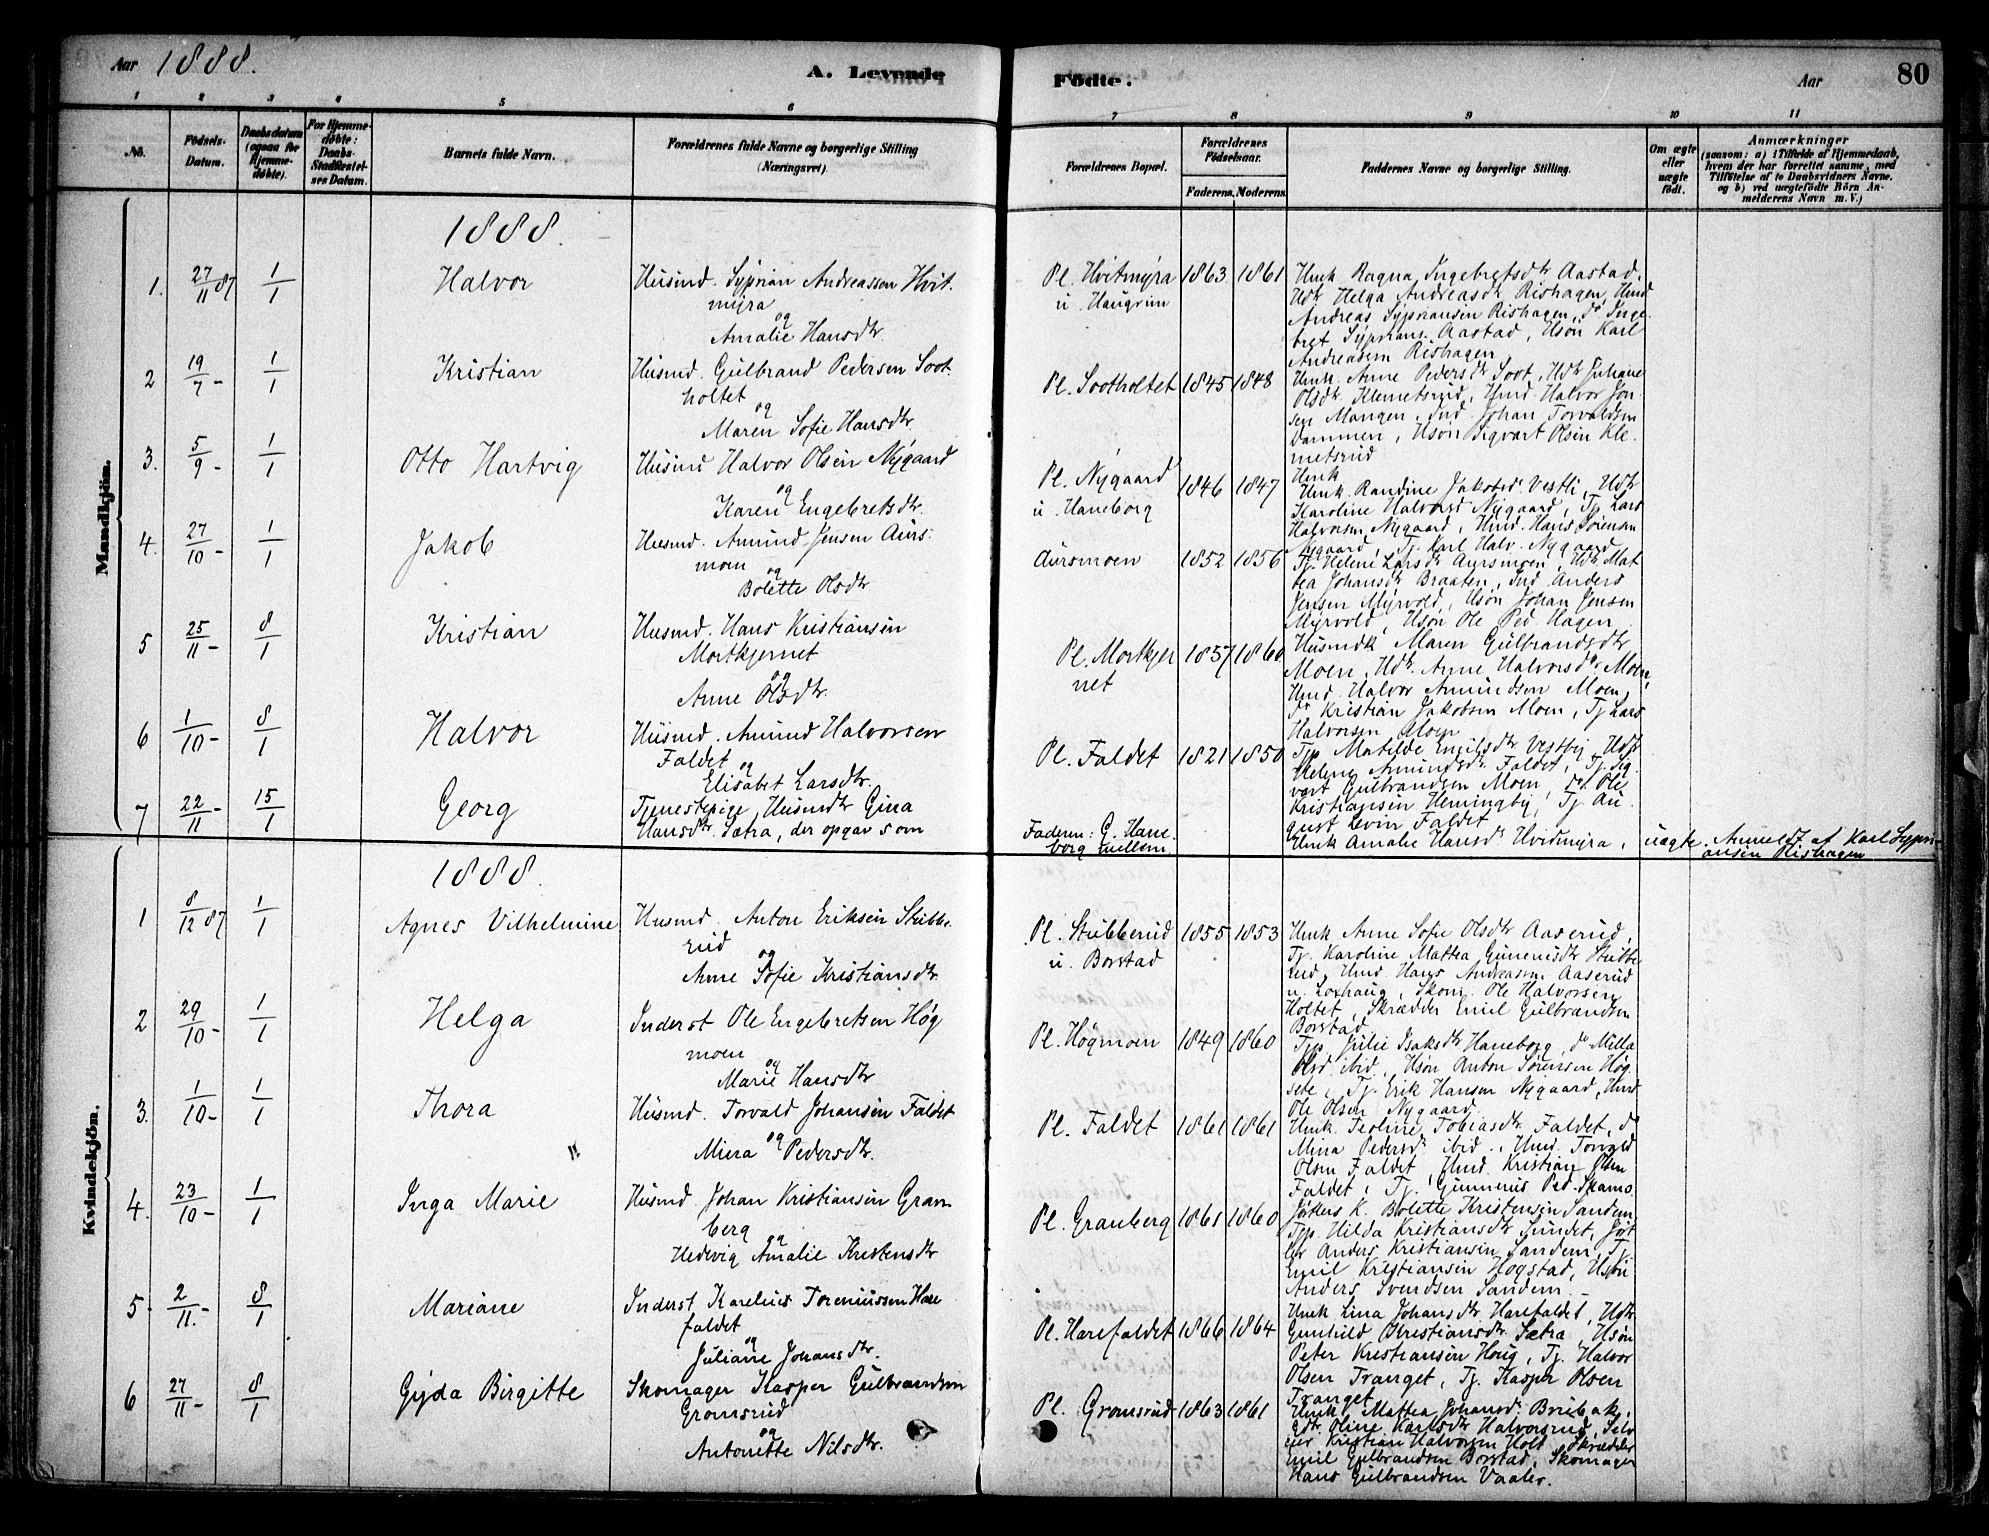 Aar 1888.
A. Levende
Födte.
Aar
80
1 2 3 4 5 6 7 8 9 10 11
No.
Födsels-
Datum.
Daabsdatum
(ogsaa for
Hjemme-
döbte).
For Hjemme-
döbte:
Daabs-
Stadfæstel-
ses Datum.
Barnets fulde Navn.
Forældrenes fulde Navne og borgerlige Stilling
(Næringsvei).
Forældrenes Bopæl.
Forældrenes
Födselsaar.
Faderens. Moderens.
Faddernes Navne og borgerlige Stilling.
Om ægte
eller
uægte
födt.
Anmærkninger
(saasom: a) i Tilfælde af Hjemmedaab,
hvem der har forrettet samme, med
Tilföielse af to Daabsvidners Navne,
og b) ved uægtefödte Börn An-
melderens Navn m. V.)
Mandkjön.
1888.
1. 27/11 87 1/1 Halvor
Husmd. Syprian Andreassen Hvit-
myra
og
Amalie Hansdtr.
Pl. Hvitmyra
u. Haugrim
1863 1861
Hmk. Ragna Ingebretsdtr Aastad,
Udtr Helga Andreasdtr Rishagen, Hmd
Andreas Sypriansen Rishagen, do Inge-
bret Syprians. Aastad, Uson Karl
Andreasen Rishagen
2 19/7 - 1/1 Kristian
Husmd. Gulbrand Pedersen Soot-
holtet
og
Maren Sofie Hansdtr.
Pl. Sootholtet
1845 1848
Hmk. Anne Pedersdtr Soot, Udtr Juhane
Olsdtr. Klemetsrud, Hmd Halvor Jon-
sen Mangen, Ind. Johan Torvaldsen
Dammen, Uson Sigvart Olsen Kle-
metsrud
3. 5/9 - 1/1 Otto Hartvig
Husmd Halvor Olsen Nygaard
og
Karen Engebretsdtr.
Pl. Nygaard
u. Haneborg
1846 1847
Hmk
Hmk. Randine Jakobsd. Vestli, Udtr
Karoline Halvorsd Nygaard, Tj. Lars
Halvorsen Nygaard, Hmd. Hans Sörensen
Nygaard, Tj. Karl Halv. Nygaard
4. 27/10 - 1/1 Jakob
Husmd. Amund Jensen Aurs-
moen
og
Bolette Olsdtr
Aursmoen
1852 1856
Tj. Helene Larsdtr Aursmoen, Udtr Mat
tea Johansdtr Braaten, Ind Anders
Jensen Myrvold, Uson Johan Jensen
Myrvold, Uson Ole Ped Hagen
5 25/11 - 8/1 Kristian
Husmd. Hans Kristiansen
Mortkjernet
og
Anne Olsdtr.
Pl. Mortkjer
net
1857 1860
Husmdk Maren Gulbrandsdtr
Moen, Udtr. Anne Halvorsdtr Moen,
Hmd. Halvor Amundsen Moen,
do Kristian Jakobsen Moen, Tj Lars
Halvorsen Moen
6 1/10 - 8/1 Halvor
Husmd. Amund Halvorsen
Faldet
og
Elisabet Larsdtr.
Pl. Faldet
1821 1850
Tjp Matilde Engelsdtr Vestby, Udtr
Helene Amundsdtr Faldet, Tj. Sig-
vart Gulbrandsen Moen, do Ole
Kristiansen Hemingby, Tj. Au-
gust Levin Faldet
7 22/11 - 15/1 Georg
Tjenestepige Husmdtr Gina
Hansdtr. Sætra, der opgav som
Faderen: G. Hane-
borg mellem.
Hmk Amalie Hansd. Hvidmyra,
uægte.
Anmeldt af Karl Sypri-
ansen Rishagen
Kvindekjön.
1888.
1 8/12 87 1/1 Agnes Vilhelmine
Husmd. Anton Eriksen Stubbe-
rud
og
Anne Sofie Kristiansdtr.
Pl. Stubberud
u. Borstad
1855 1853
Hmk Anne Sofie Olsdtr Aaserud,
Tj. Karoline Mattea Gunerusdtr Stubbe
rud, Hmd. Hans Andreasen Aaserud
u. Loxhaug, Skom. Ole Halvorsen
Holtet, Skrædder Emil Gulbrandsen
Borstad
2 29/10 - 1/1 Helga
Inderst Ole Engebretsen Høg
moen
og
Marie Hansdtr
Pl. Høgmoen
1849 1860
Tjp Julie Isaksdtr Haneborg, do Milla
Olsd ibid, Uson Anton Sörensen Høg
sete, Tj. Erik Hansen Nygaard, Hmd
Ole Olsen Nygaard
3. 1/10 - 1/1 Thora
Husmd. Torvald Johansen Faldet
og
Mina Pedersdtr.
Pl. Faldet
1861 1861
Hmk. Teoline Tobiasdtr Faldet, do
Mina Pedersd. ibid., Hmd. Torvald
Olsen Faldet, Hmd. Kristian Olsen
Faldet, Tj. Gunnerius Ped. Skamo
4. 23/10 - 1/1 Inga Marie
Husmd. Johan Kristiansen Gran
berg
og
Hedevig Amalie Kristensdtr
Pl. Granberg
1861 1860
K. Bolette Kristensen Sandem
Tjp Hilda Kristiansdtr Lundet,
Anders Kristiansen Sandem, Tj
Emil Kristiansen Hogstad, Uson
Anders Svendsen Sandem. -
5 - 2/11. - 8/1 Mariane
Inderst Karelius Toreniussen Hare
faldet
og
Juliane Johansdtr.
Pl. Harefaldet
1866 1864
Hmk Lina Johansdtr Harefaldet, Udtr
Gunhild Kristiansdtr Sætra, Uson
Peter Kristiansen Houg, Tj. Halvor
Olsen Tranget, Tj. Kasper Olsen
Tranget
6 27/11 - 8/1 Gyda Birgitte
Skomager Kasper Gulbrandsen
Gromsrud
og
Antonette Nilsdtr.
Pl. Gromsrud
1863 1861
Hmk. Mattea Johansd. Breibak,
Gdtr. Oline Karlsdtr Halvorsrud, Selv
eier Kristian Halvorsen Holt, Skrædder
Emil Gulbrandsen Borstad, Skomager
Hans Gulbrandsen Vaaler.